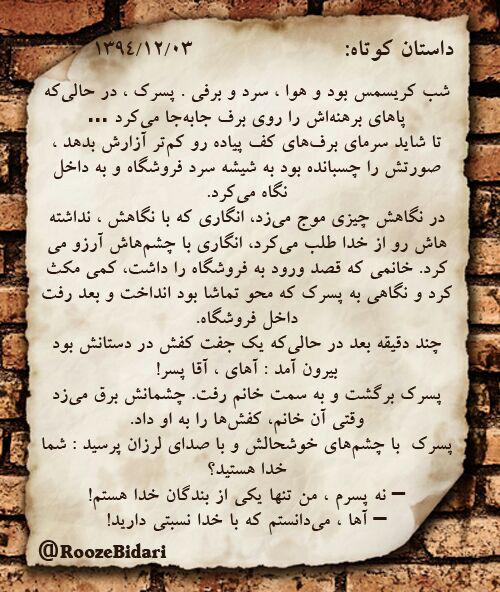 داستان کوتاه: ۱۳۹۴/۱۲/۰۳
شب کریسمس بود و هوا ، سرد و برفی . پسرک ، در حالی‌که
پاهای برهنه‌اش را روی برف جابه‌جا می‌کرد ...
تا شاید سرمای برف‌های کف پیاده رو کم‌تر آزارش بدهد ،
صورتش را چسبانده بود به شیشه سرد فروشگاه و به داخل
نگاه می‌کرد.
در نگاهش چیزی موج می‌زد، انگاری که با نگاهش ، نداشته
هاش رو از خدا طلب می‌کرد، انگاری با چشم‌هاش آرزو می
کرد. خانمی که قصد ورود به فروشگاه را داشت، کمی مکث
کرد و نگاهی به پسرک که محو تماشا بود انداخت و بعد رفت
داخل فروشگاه.
چند دقیقه بعد در حالی‌که یک جفت کفش در دستانش بود
بیرون آمد : آهای ، آقا پسر!
پسرک برگشت و به سمت خانم رفت. چشمانش برق می‌زد
وقتی آن خانم، کفش‌ها را به او داد.
پسرک با چشم‌های خوشحالش و با صدای لرزان پرسید : شما
خدا هستید؟
– نه پسرم ، من تنها یکی از بندگان خدا هستم!
– آها ، می‌دانستم که با خدا نسبتی دارید!
@RoozeBidari